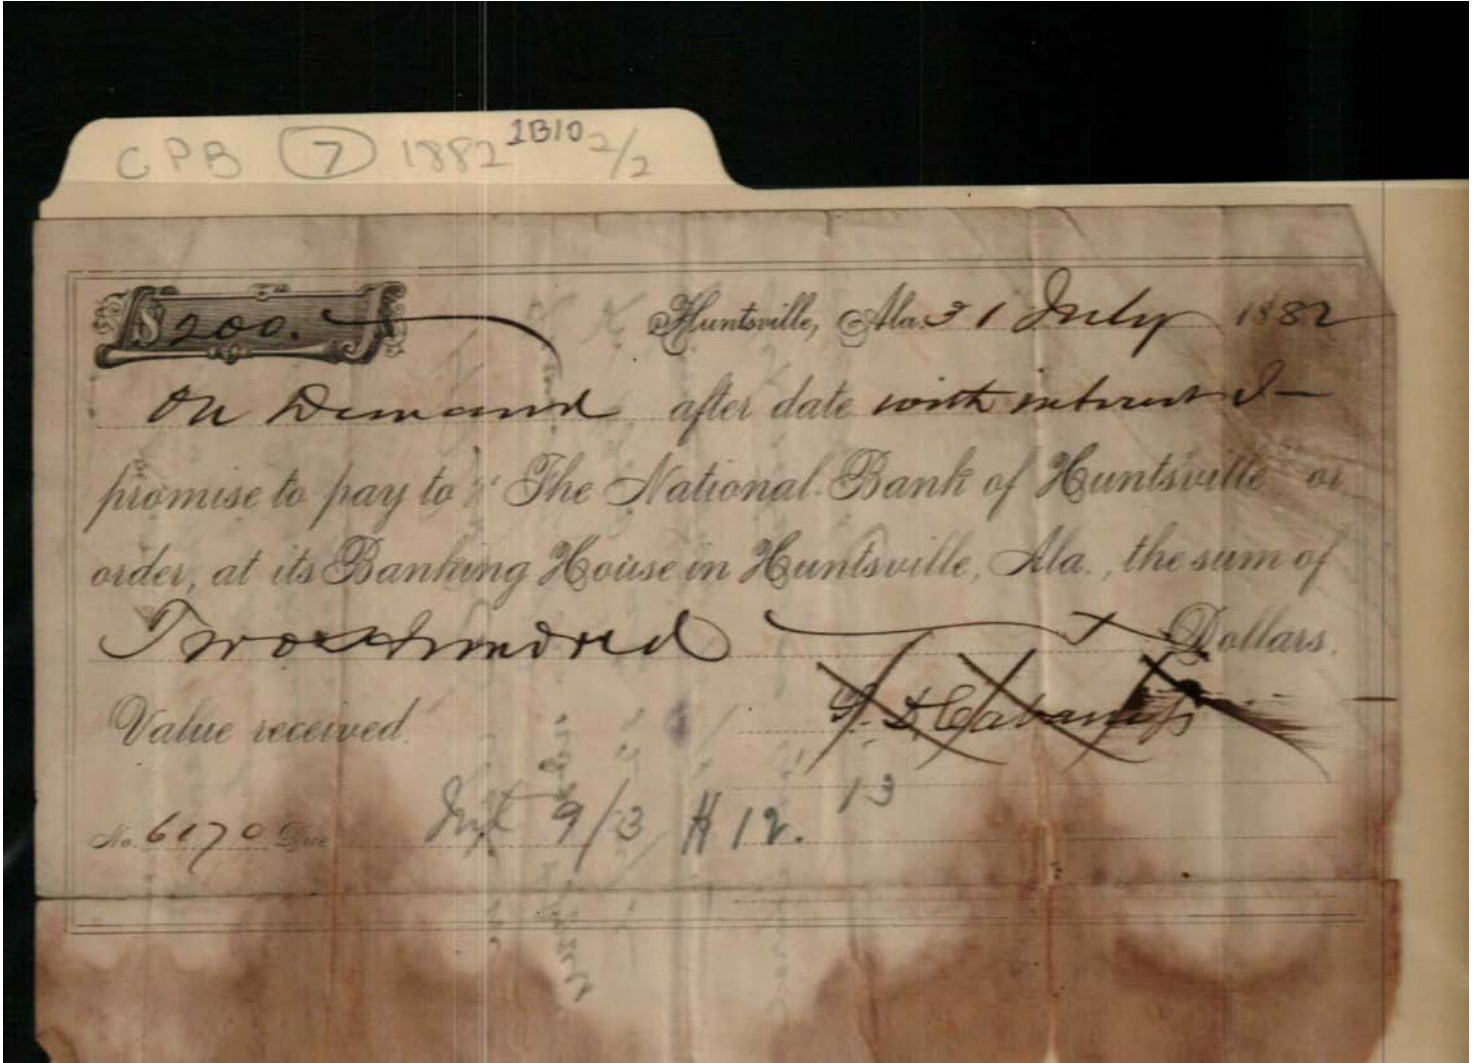 CPB 7 1882 1B10 2/2
$200. Huntsville, Ala. 31 July 1882
On Demand after date with interest I
promise to pay to "The National Bank of Huntsville" or
order, at its Banking House in Huntsville, Ala., the sum of
Two Hundred Dollars.
Value received.
Cabaniss
13
No. 6170 Due 9/3 12.